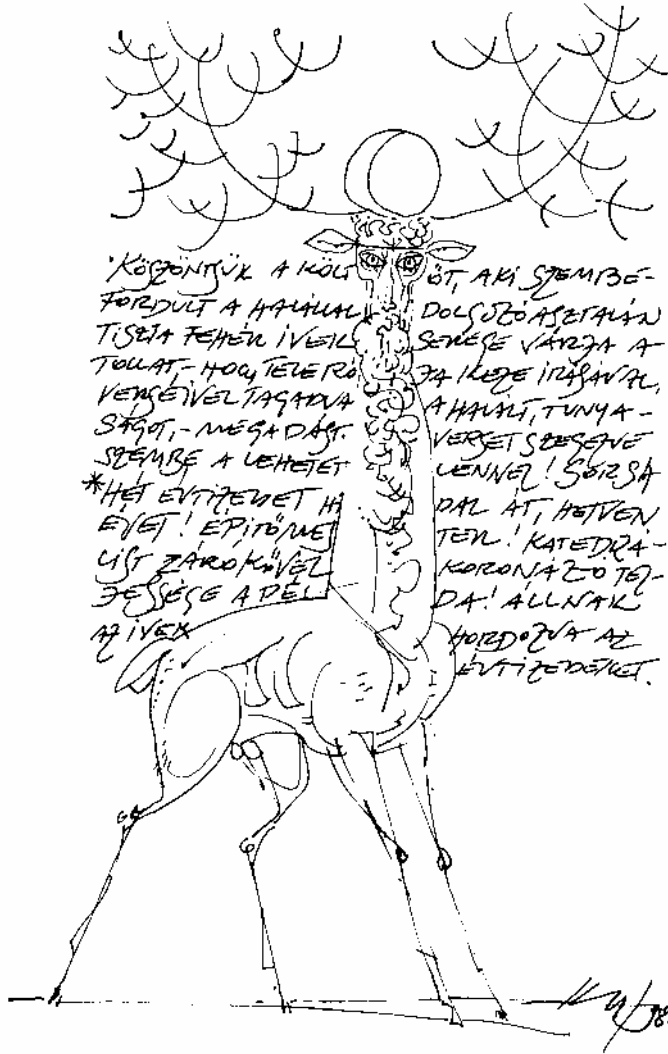 KÖSZÖNTJÜK A KÖLT ŐT, AKI SZEMBE-
FORDULT A HALÁLLAL DOLGOZÓASZTALÁN
TISZTA FEHÉR ÍVEK SEREGE VÁRJA A
TOLLAT,- HOGY TELE RÓ JA KEZE ÍRÁSÁVAL,
VERSEIVEL TAGADVA A HALÁLT, TUNYA-
SÁGOT,- MEGADÁST. VERSET SZEGEZVE
SZEMBE A LEHETET LENNEL! SORSA
*HÉT ÉVTIZEDET HI DAL ÁT, HETVEN
ÉVET! ÉPITŐMES TER! KATEDRÁ-
LIST ZÁRÓKŐVEL KORONÁZÓ TEL-
JESSÉGE A PÉL DA! ÁLLNAK
AZ ÍVEK HORDOZVA AZ
ÉVTIZEDEKET.